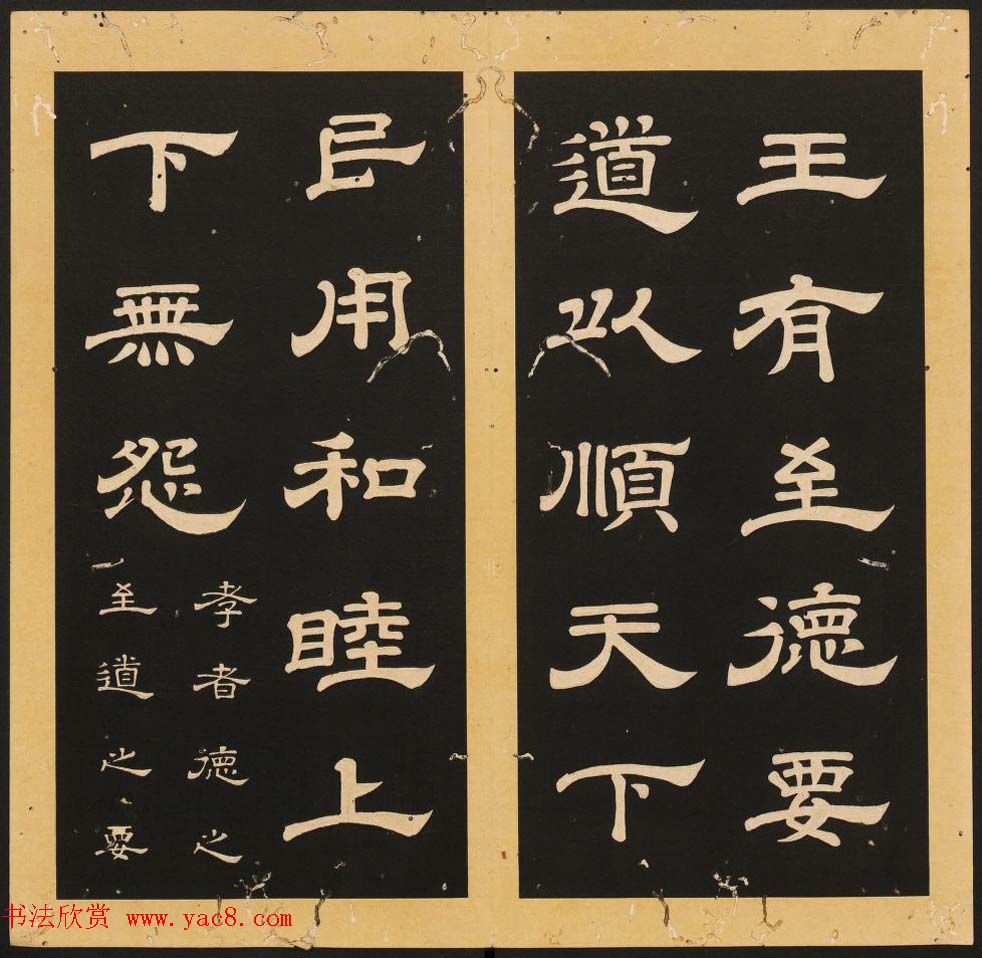 王有至德要
道以順天下
民用和睦上
下無怨
孝者德之
至道之要
书法欣赏 www.yac8.com